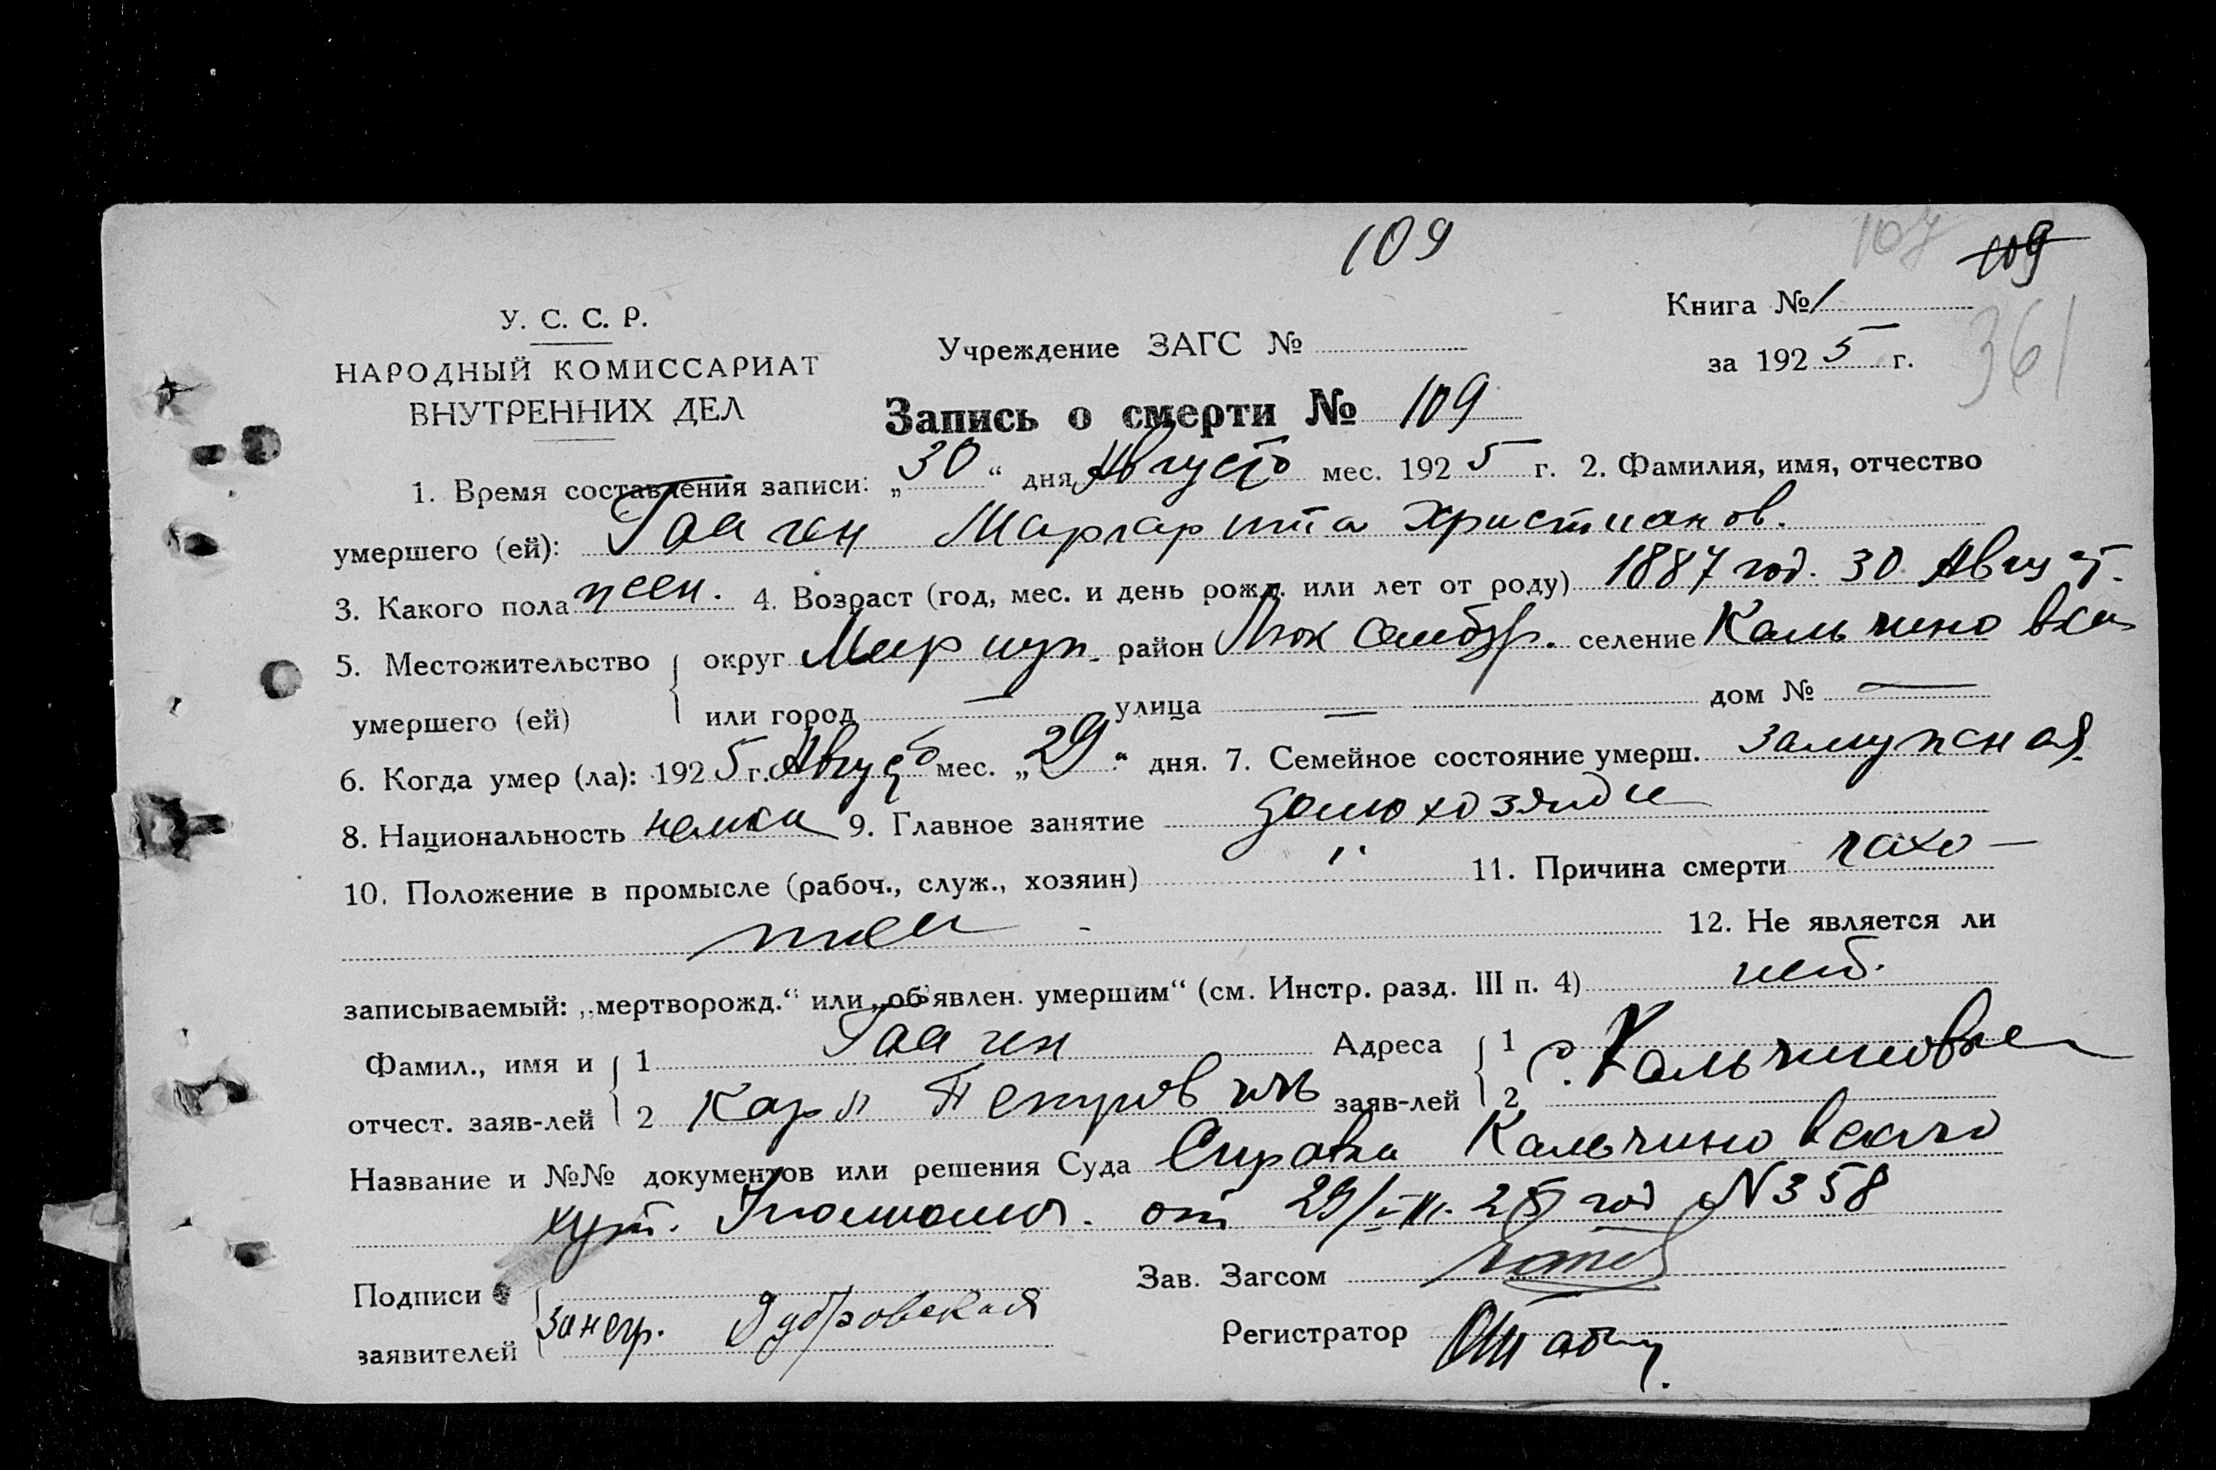 109 107 109
У. С. С. Р.
НАРОДНЫЙ КОМИССАРИАТ
ВНУТРЕННИХ ДЕЛ
Учреждение ЗАГС №
Книга № 1
за 1925 г.
361
Запись о смерти № 109
1. Время составления записи: „30“ дня Августа мес. 1925 г. 2. Фамилия, имя, отчество
умершего (ей): Гааген Маргарита Христианов.
3. Какого пола жен. 4. Возраст (год, мес. и день рожд. или лет от роду) 1887 год. 30 Август.
5. Местожительство умершего (ей) округ Мариуп. район Люксембур. селение Кальчиновка
или город — улица — дом № —
6. Когда умер (ла): 1925 г. Августа мес. „29“ дня. 7. Семейное состояние умерш. замужная
8. Национальность немка 9. Главное занятие домохозяйка
10. Положение в промысле (рабоч., служ., хозяин) " 11. Причина смерти чахо-
ткей 12. Не является ли
записываемый: „мертворожд.“ или „об'явлен. умершим“ (см. Инстр. разд. III п. 4) нет.
Фамил., имя и отчест. заяв-лей 1 Гааген
2 Карл Петрович
Адреса заяв-лей 1 2 с. Кальчиновка
Название и №№ документов или решения Суда Справка Кальчиновского
хут. от 29/VIII. 25 год N 358
Подписи заявителей
Дубровская
Зав. Загсом
Регистратор